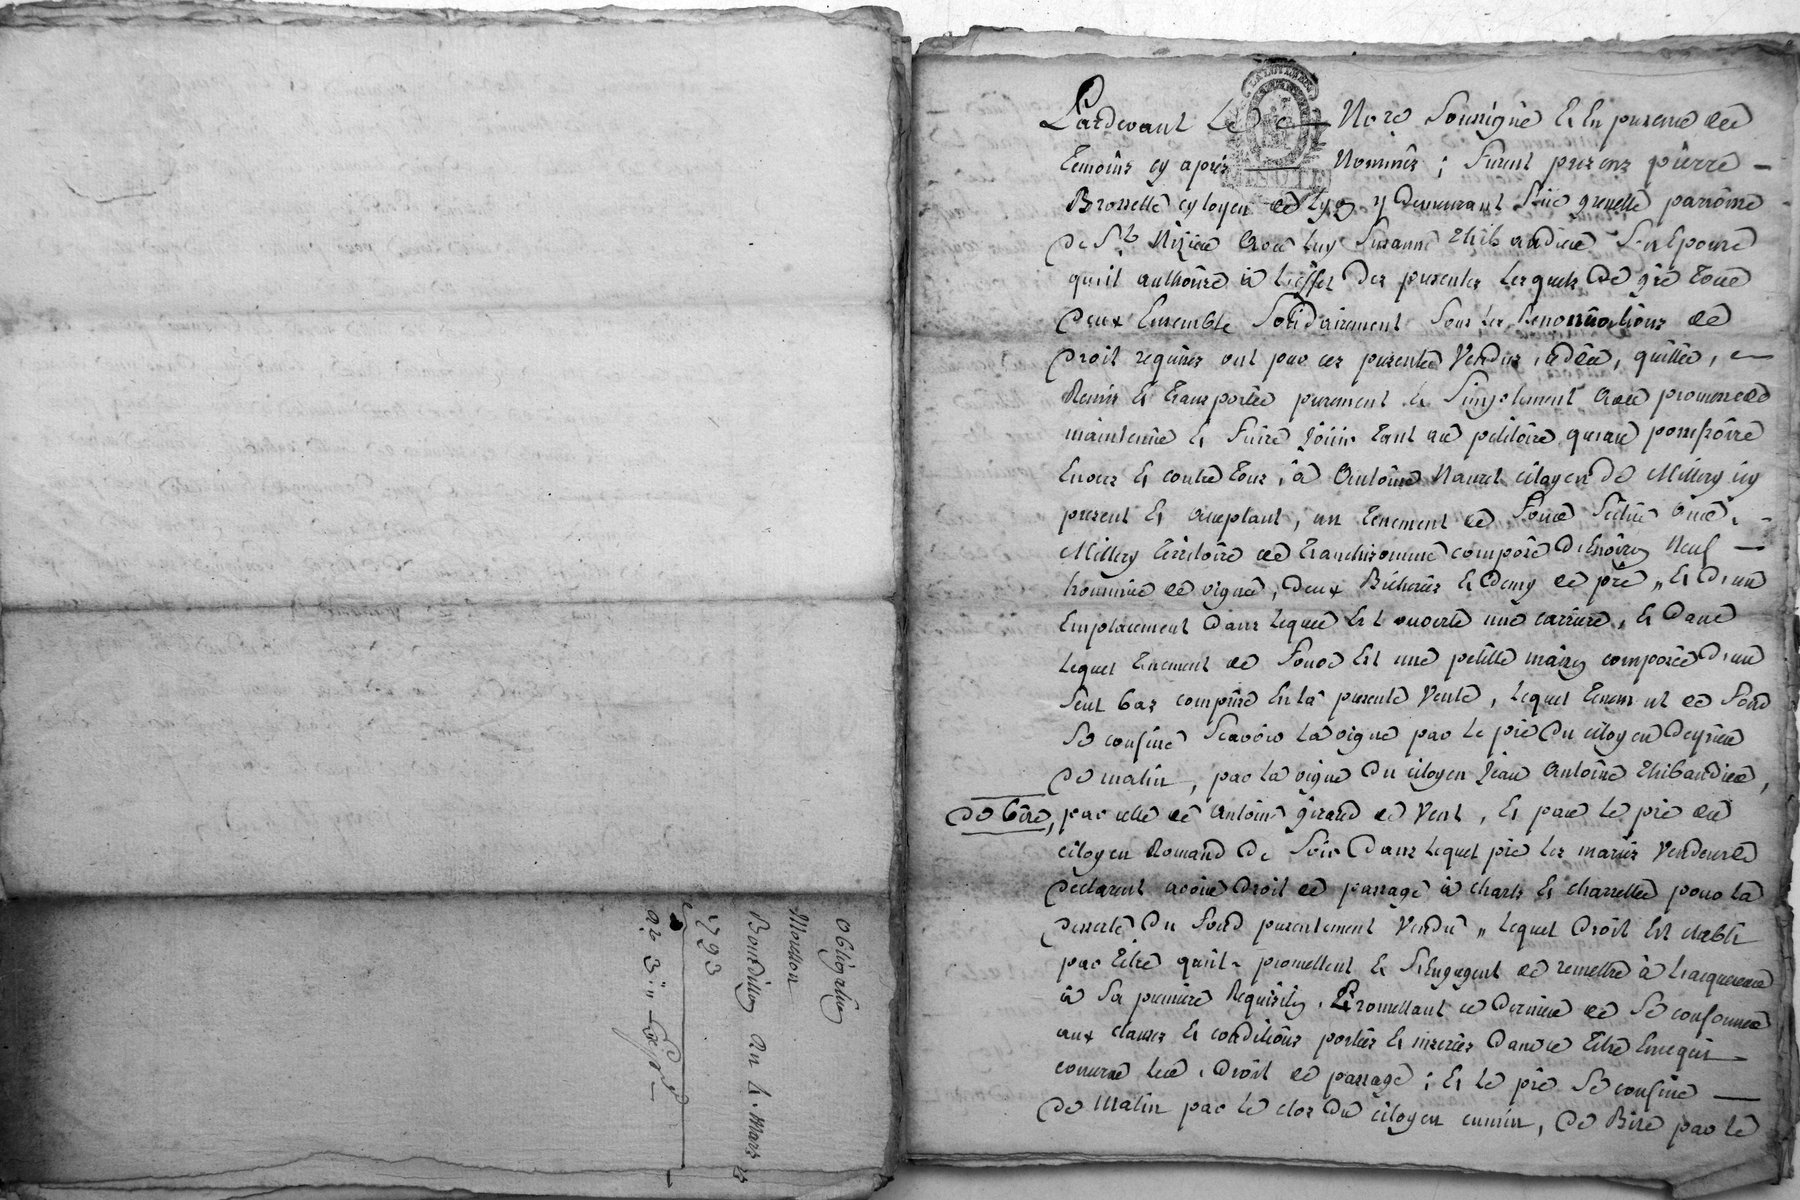 Obligation
Mousson
Bourdillon du 4. Mars
1793
Pardevant Le Nore Soussigné & En presence des
Temoins cy après Nommés ; furent presens pierre
Brosselle cytoyen de Lyon y Demeurant Rue grenette parroisse
de St Nizier Avec luy Suzanne Thibaudier Son Epouse
quil authorise à L'effet Des presentes Lesquels De gré Tous
Deux Ensemble Solidairement Sous Les Renonciations de
Droit requises ont par ces presentes Vendus, cédés, quittés,
Remis & transportés purement & Simplement Avec promesse de
maintenir & faire Jouir tant au petitoire qu'au possessoire
Envers & contre Tous, à Antoine Nauet citoyen de Millery icy
present & Acceptant, un Tenement de Fond Scitué
Millery Territoire de composé D'Environ Neuf
hommées de vigne, Deux Bicherées & Demy de pré, & D'un
Emplacement Dans Lequel Est ouverte une carriere, & Dans
Lequel Tenement de Fond Est une petitte maison composée D'un
Seul bas comprise En la presente Vente, Lequel Tenement de Fond
Se confine Scavoir La vigne par Le pré Du citoyen Deyrieu
De matin, par La vigne Du citoyen Jean Antoine Thibaudier,
De bize, par celle de Antoine Girard de Vent, & par Le pré du
citoyen Romand De Soir Dans Lequel pré Les mariés Vendeurs
Declarent avoir Droit de passage à chars & charrettes pour La
Desserte Du Fond presentement Vendu, Lequel Droit Est etabli
par Titre quils promettent & S'Engagent de remettre à L'acquereur
à Sa premiere Requisition, Promettant ce Dernier de Se conformer
aux clauses & conditions portées & inserées Dans Ce Titre En ce qui
concerne Led. Droit de passage ; & Le pré Se confine
De Matin par Le clos Du citoyen cumin, De Bize par Le